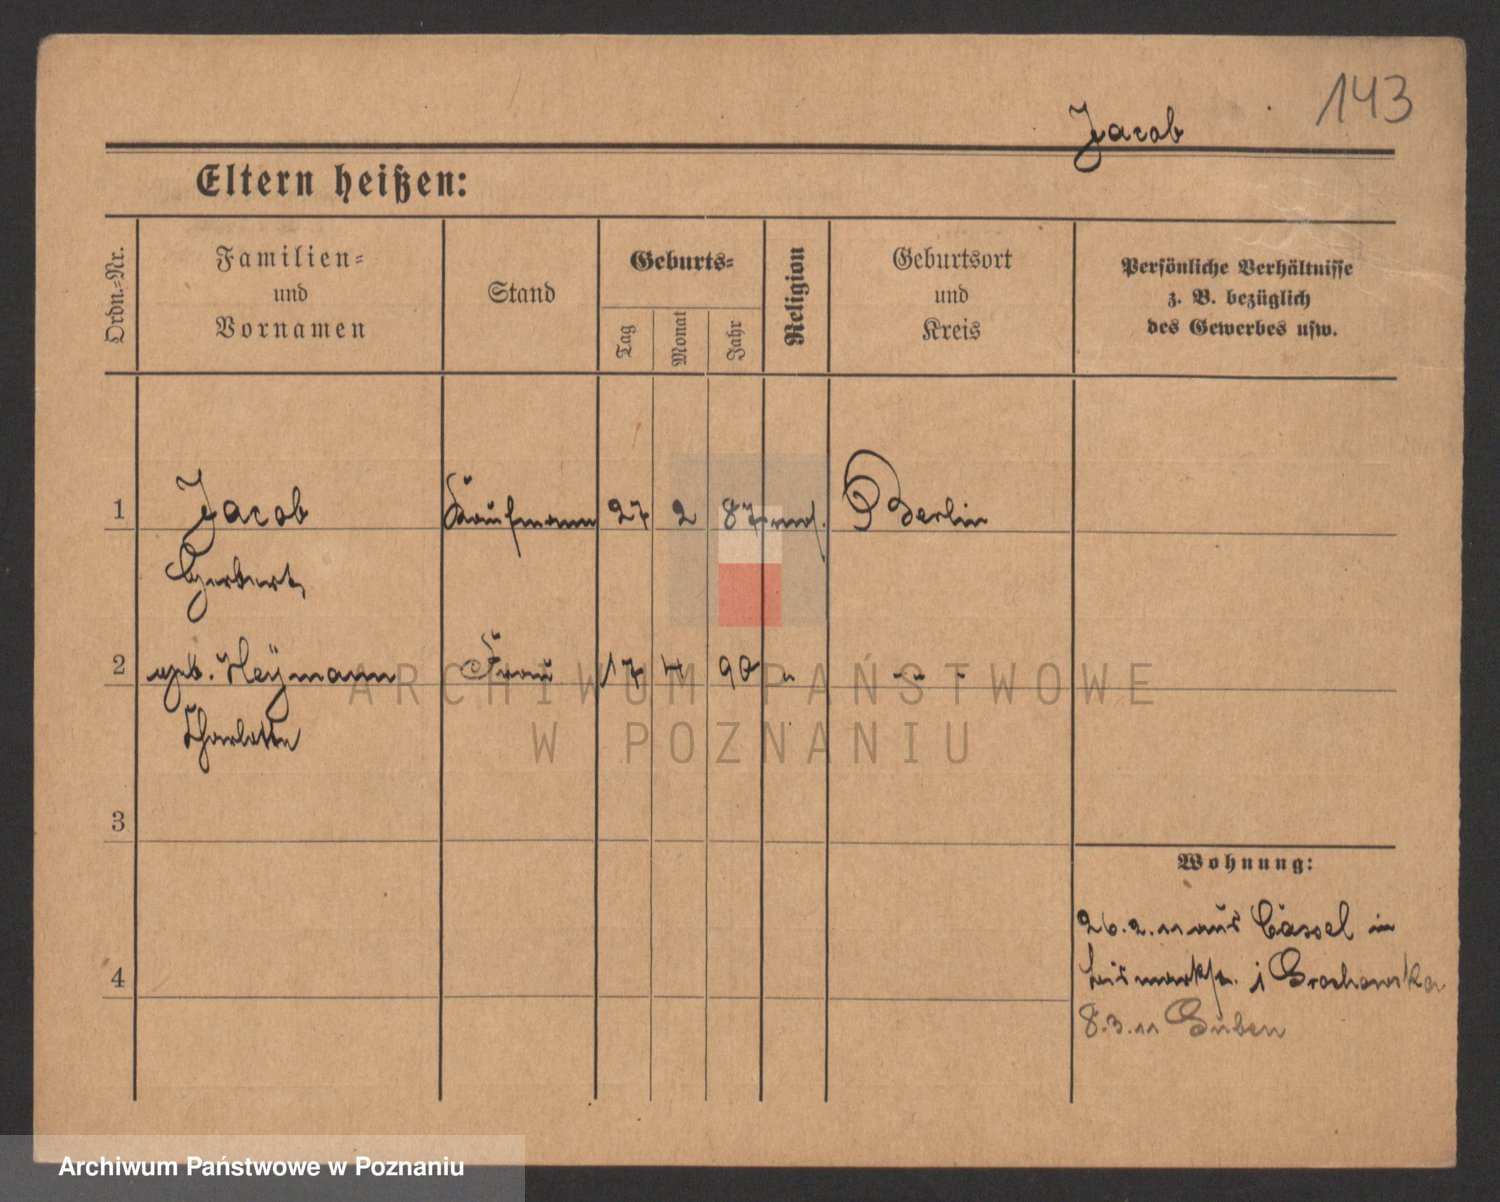 143
Jacob
Eltern heißen:
Ordn.-Nr.
Familien-
und
Vornamen
Stand
Geburts-
Tag
Monat
Jahr
Religion
Geburtsort
und
Kreis
Persönliche Verhältnisse
z. B. bezüglich
des Gewerbes usw.
1 Jacob Kaufmann 27 2 87 mos. Berlin
Herbert
2 geb. Heÿmann Frau 17 4 90 " - " -
Charlotte
3
4
Wohnung:
26.2.11 aus Cassel in
Bismarkstr. 1 Grochowska
8.3.11 Guben
ARCHIWUM PAŃSTWOWE
W POZNANIU
Archiwum Państwowe w Poznaniu